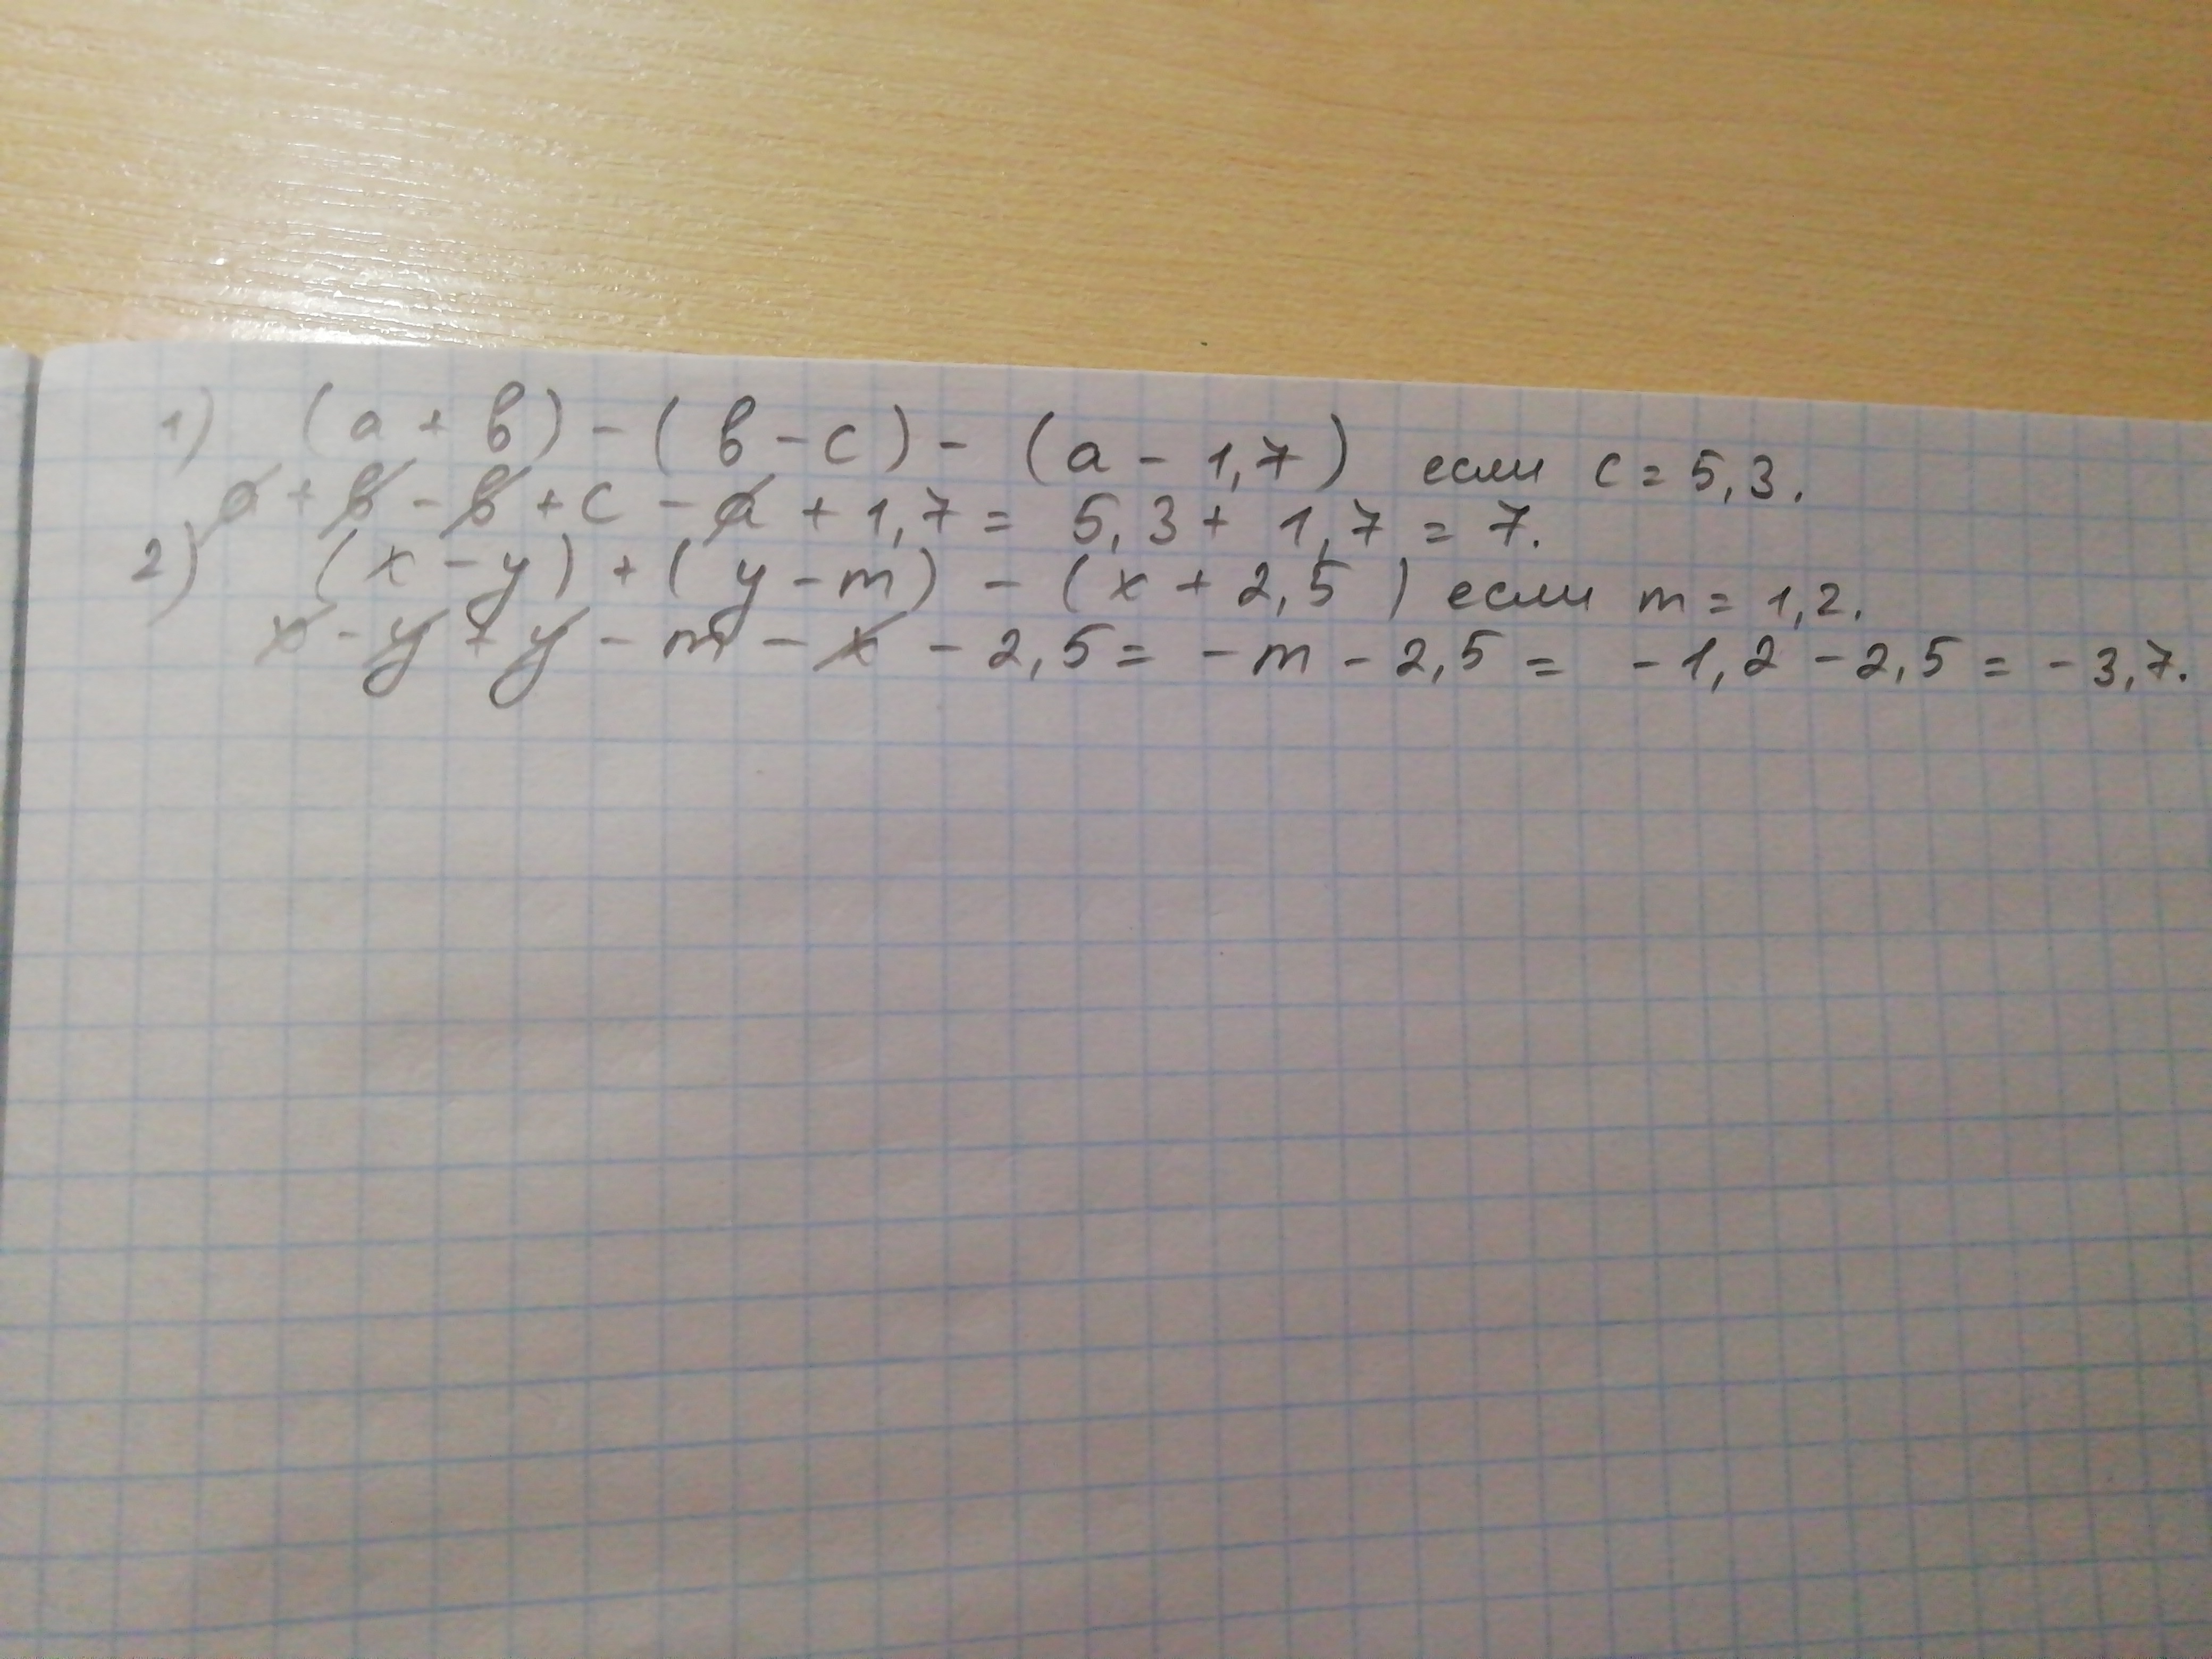 1) (a + в) - (в - c) - (a - 1,7) если c = 5,3.
a + в - в + c - a + 1,7 = 5,3 + 1,7 = 7.
2) (x - y) + (y - m) - (x + 2,5) если m = 1,2.
x - y + y - m - x - 2,5 = - m - 2,5 = - 1,2 - 2,5 = - 3,7.